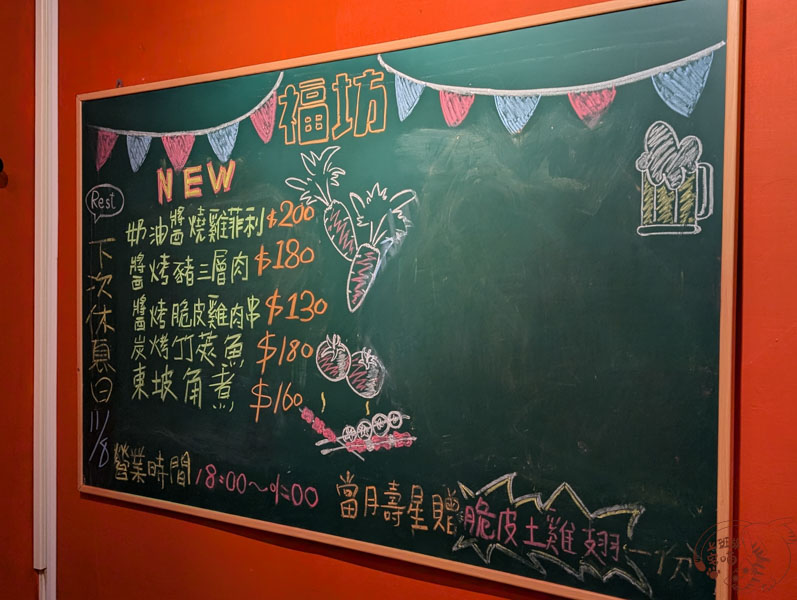 福坊
NEW
Rest
下次休息日 11/8
奶油醬燒雞菲利 $200
醬烤豬三層肉 $180
醬烤脆皮雞肉串 $130
炭烤竹莢魚 $180
東坡角煮 $160
營業時間 18:00~01:00
當月壽星贈 脆皮土雞翅 一份